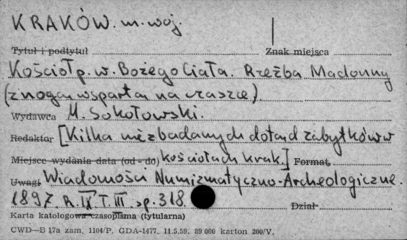 KRAKÓW. m. woj.
Tytuł i podtytuł Znak miejsca
Kościół p. w. Bożego Ciała. Rzeźba Madonny
(z nogą wspartą na czaszce)
Wydawca M. Sokołowski.
Redaktor [Kilka niezbadanych dotąd zabytków w
Miejsce wydania data (od - do) kościołach krak.] Format
Uwagi Wiadomości Numizmatyczno-Archeologiczne.
1897. R. IX T. III. sp. 318. Dział
Karta katalogowa czasopisma (tytularna)
CWD—B 17a zam. 1104/P. GDA-1477. 11.5.59. 89 000 karton 200/V.